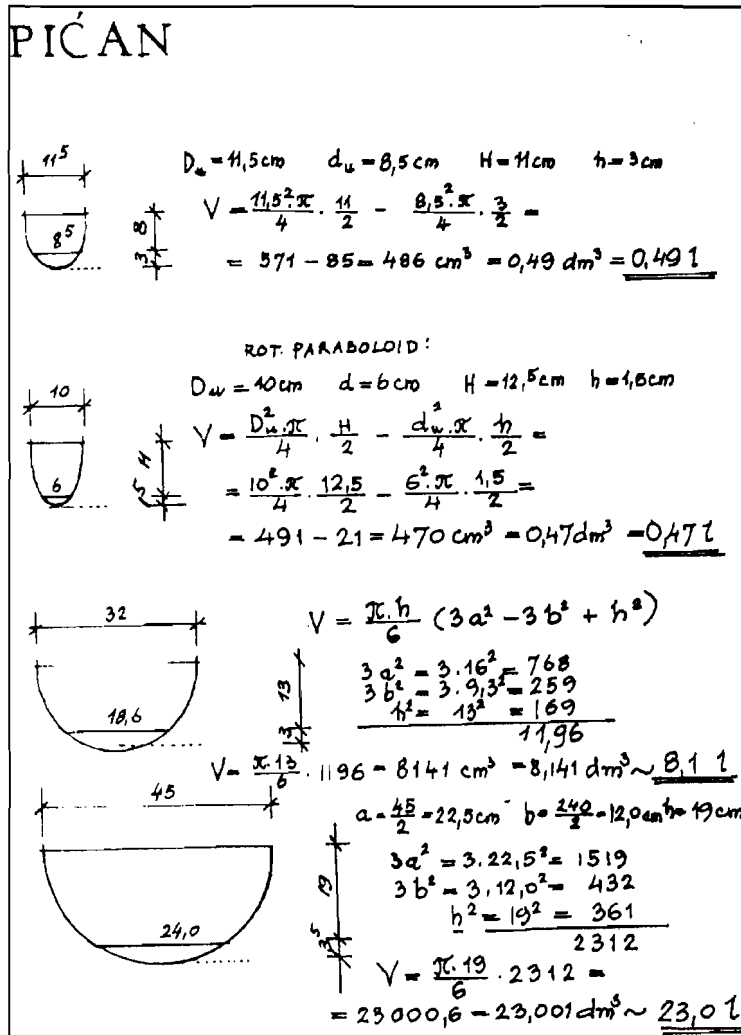 PIĆAN
11⁵
8⁵
8
3
Dᵤ = 11,5cm dᵤ = 8,5cm H = 11cm h = 3cm
V = 11,5²·π/4 · 11/2 − 8,5²·π/4 · 3/2 =
= 571 − 85 = 486 cm³ = 0,49 dm³ = 0,49 l
ROT. PARABOLOID:
10
6
H
Dᵤ = 10cm d = 6cm H = 12,5cm h = 1,5cm
V = Dᵤ²·π/4 · H/2 − dᵤ²·π/4 · h/2 =
= 10²·π/4 · 12,5/2 − 6²·π/4 · 1,5/2 =
= 491 − 21 = 470 cm³ = 0,47 dm³ = 0,47 l
32
18,6
13
3
V = π·h/6 (3a² − 3b² + h²)
3a² = 3·16² = 768
3b² = 3·9,3² = 259
h² = 13² = 169
11,96
V = π·13/6 · 1196 = 8141 cm³ = 8,141 dm³ ~ 8,1 l
45
24,0
19
3⁵
a = 45/2 = 22,5cm b = 240/2 = 12,0cm h = 19cm
3a² = 3·22,5² = 1519
3b² = 3·12,0² = 432
h² = 19² = 361
2312
V = π·19/6 · 2312 =
= 23000,6 = 23,001 dm³ ~ 23,0 l